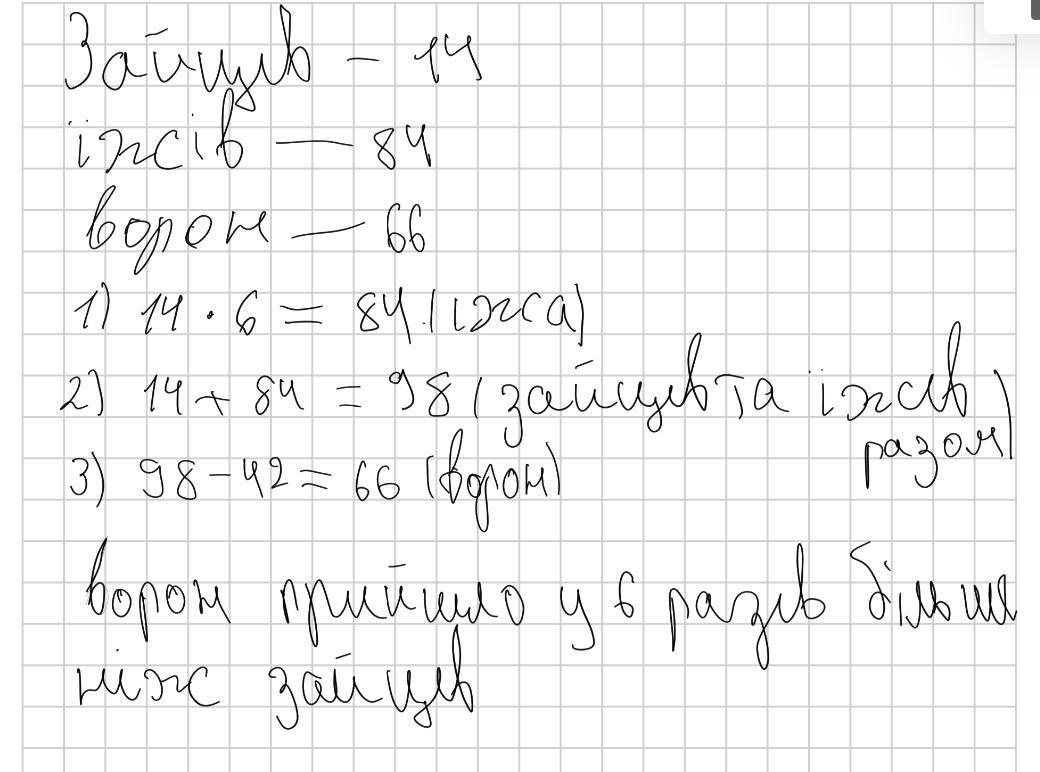 Зайців - 14
їжсів - 84
ворон - 66
1) 14 · 6 = 84 (їжса)
2) 14 + 84 = 98 (зайців та їжсів
разом)
3) 98 - 42 = 66 (ворон)
ворон прийшло у 6 разів більше
ніж зайців